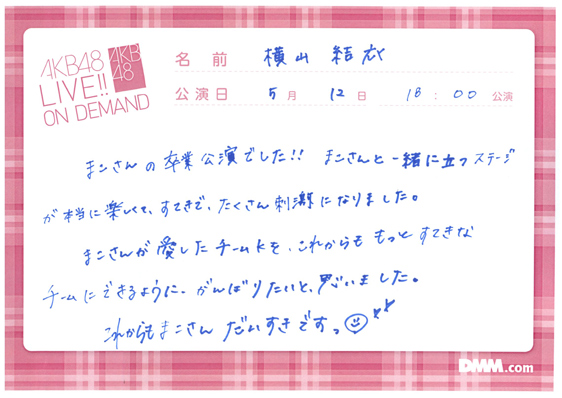 AKB48
LIVE!!
ON DEMAND
AKB
48
名前 横山結衣
公演日 5月 12日 18:00 公演
まこさんの卒業公演でした!! まこさんと一緒に立つステージ
が本当に楽しくて、すてきで、たくさん刺激になりました。
まこさんが愛したチームKを、これからも もっと すてきな
チームにできるように、がんばりたいと、思いました。
これからもまこさん だいすきですっ
DMM.com